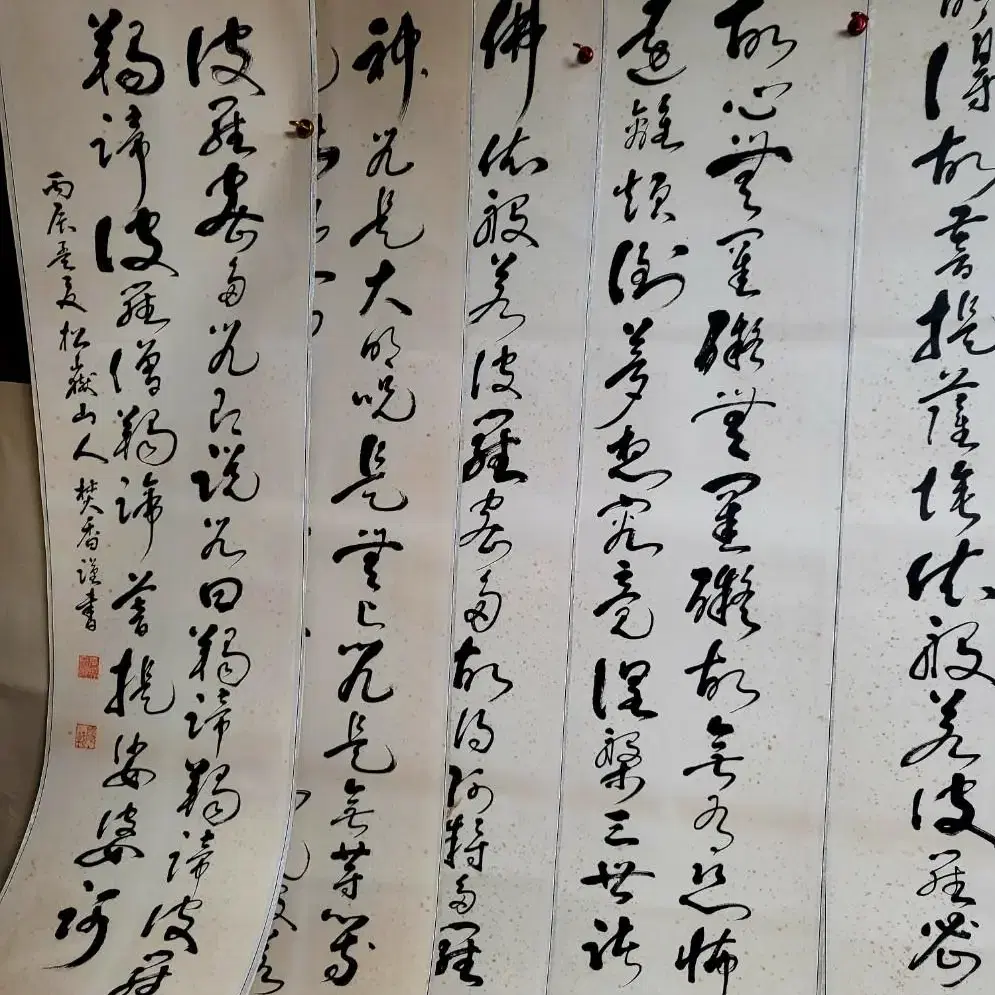 所得故菩提薩埵依般若波羅蜜
故心無罣礙無罣礙故無有恐怖
遠離顛倒夢想究竟涅槃三世諸
佛依般若波羅密多故得阿耨多羅
神咒是大明呪是無上咒是無等等
波羅密多咒即說咒曰羯諦羯諦波羅
羯諦波羅僧羯諦菩提娑婆訶
丙辰孟夏松嶽山人焚香謹書